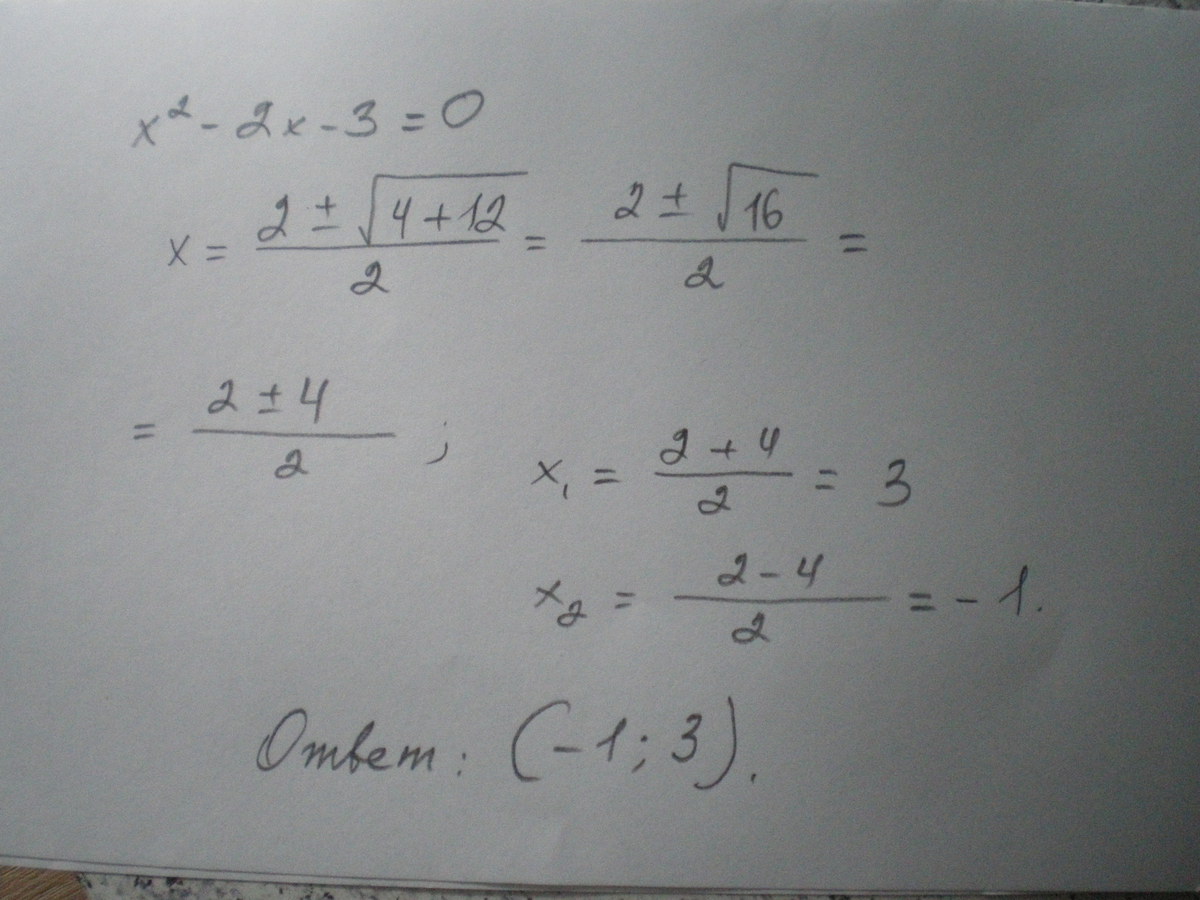 x² - 2x - 3 = 0
x = (2 ± √(4 + 12))/2 = (2 ± √16)/2 =
= (2 ± 4)/2 ;
x₁ = (2 + 4)/2 = 3
x₂ = (2 - 4)/2 = - 1.
Ответ: (-1; 3).